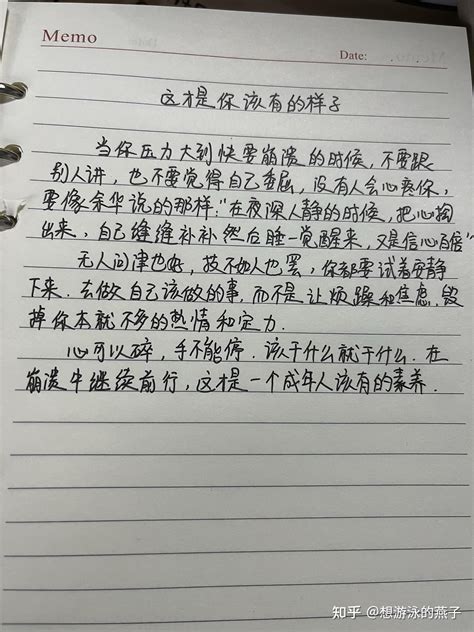 Memo
Date:
这才是你该有的样子
当你压力大到快要崩溃的时候,不要跟
别人讲,也不要觉得自己委屈,没有人会心疼你,
要像余华说的那样:"在夜深人静的时候,把心掏
出来,自己缝缝补补然后睡一觉醒来,又是信心百倍"
无人问津也好,技不如人也罢,你都要试着安静
下来.去做自己该做的事,而不是让烦躁和焦虑.毁
掉你本就不多的热情和定力.
心可以碎,手不能停.该干什么就干什么.在
崩溃中继续前行,这才是一个成年人该有的素养.
知乎 @想游泳的燕子